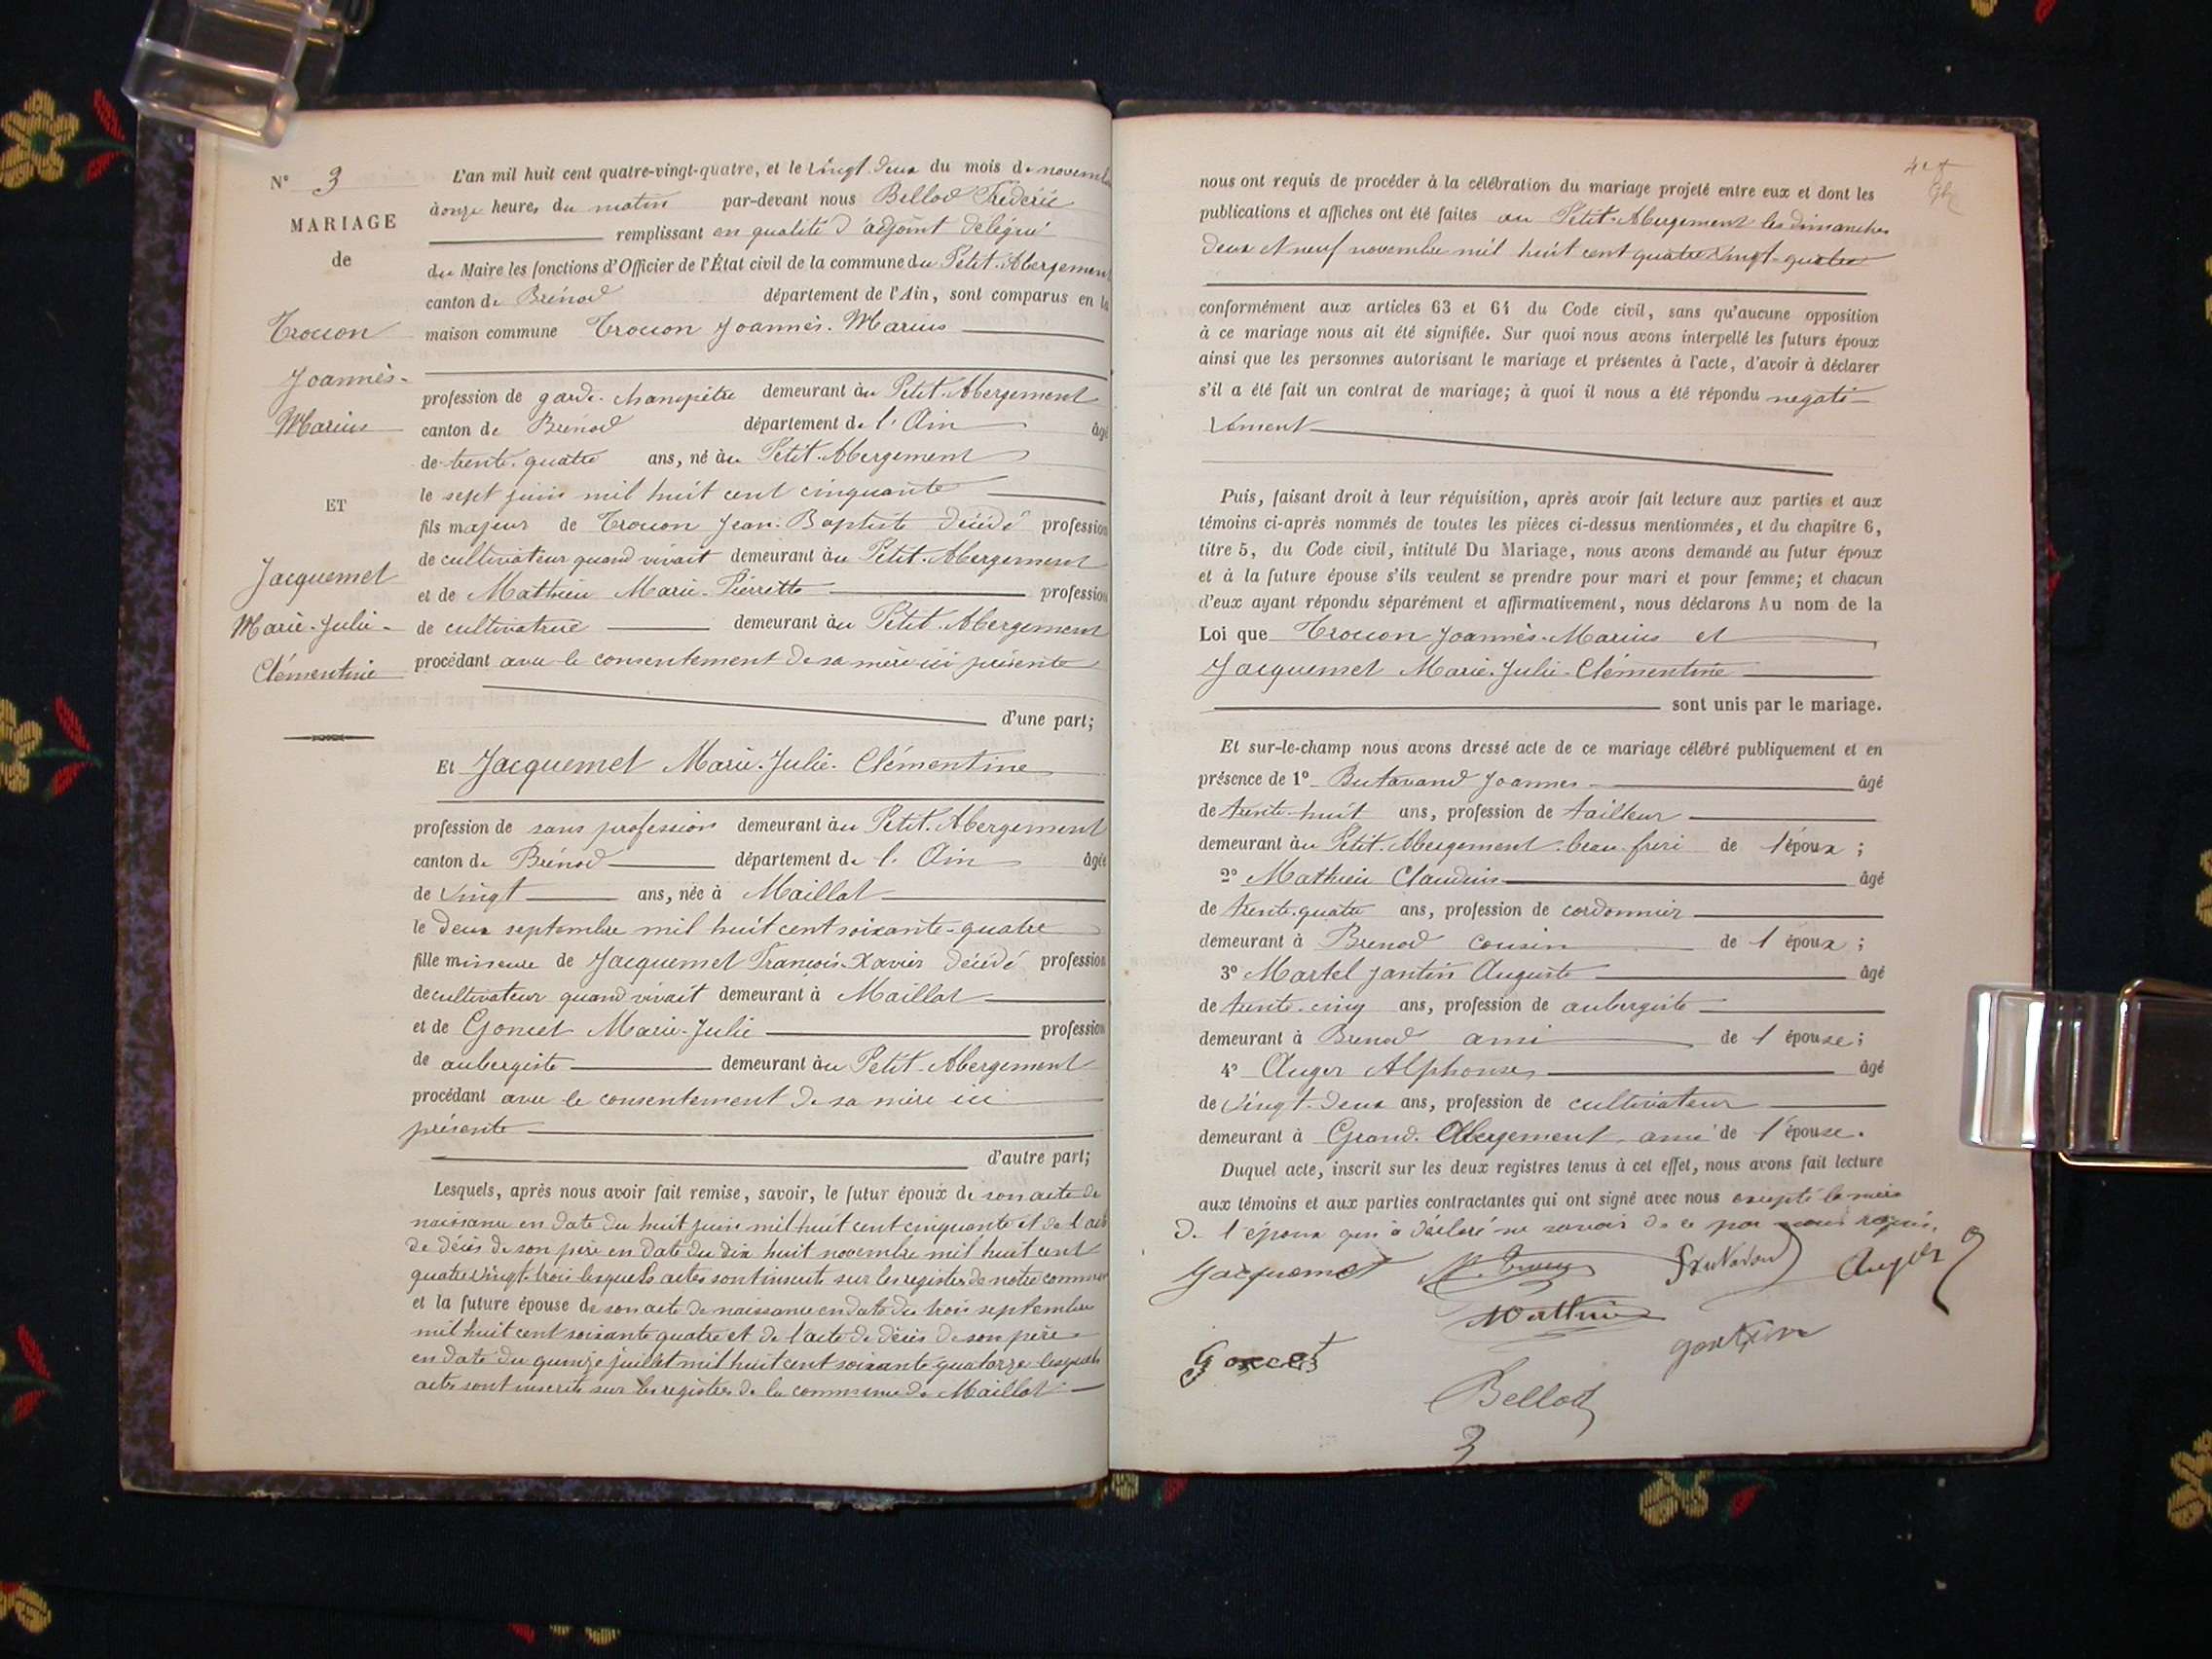 N° 3
MARIAGE
de
Troccon
Joannès-
Marius
ET
Jacquemet
Marie-Julie-
Clémentine
L'an mil huit cent quatre-vingt-quatre, et le vingt deux du mois de novembre
à onze heures du matin par-devant nous Bellod Frédéric
remplissant en qualité d'adjoint délégué
du Maire les fonctions d'Officier de l'État civil de la commune du Petit-Abergement
canton de Brénod département de l'Ain, sont comparus en la
maison commune Troccon Joannès-Marius
profession de garde-champêtre demeurant au Petit-Abergement
canton de Brénod département de l'Ain âgé
de trente-quatre ans, né au Petit-Abergement
le sept juin mil huit cent cinquante
fils majeur de Troccon Jean-Baptiste décédé profession
de cultivateur quand vivait demeurant au Petit-Abergement
et de Mathieu Marie-Pierrette profession
de cultivatrice demeurant au Petit-Abergement
procédant avec le consentement de sa mère ici présente
d'une part;
Et Jacquemet Marie-Julie-Clémentine
profession de sans profession demeurant au Petit-Abergement
canton de Brénod département de l'Ain âgée
de vingt ans, née à Maillat
le deux septembre mil huit cent soixante-quatre
fille mineure de Jacquemet François-Xavier décédé profession
de cultivateur quand vivait demeurant à Maillat
et de Goncet Marie-Julie profession
de aubergiste demeurant au Petit-Abergement
procédant avec le consentement de sa mère ici
présente
d'autre part;
Lesquels, après nous avoir fait remise, savoir, le futur époux de son acte de
naissance en date du huit juin mil huit cent cinquante et de l'acte
de décès de son père en date du dix huit novembre mil huit cent
quatre vingt-trois lesquels actes sont inscrits sur les registres de notre commune
et la future épouse de son acte de naissance en date du trois septembre
mil huit cent soixante quatre et de l'acte de décès de son père
en date du quinze juillet mil huit cent soixante quatorze lesquels
actes sont inscrits sur les registres de la commune de Maillat
nous ont requis de procéder à la célébration du mariage projeté entre eux et dont les
publications et affiches ont été faites au Petit-Abergement les dimanches
deux et neuf novembre mil huit cent quatre vingt-quatre
conformément aux articles 63 et 64 du Code civil, sans qu'aucune opposition
à ce mariage nous ait été signifiée. Sur quoi nous avons interpellé les futurs époux
ainsi que les personnes autorisant le mariage et présentes à l'acte, d'avoir à déclarer
s'il a été fait un contrat de mariage; à quoi il nous a été répondu negati-
vement
Puis, faisant droit à leur réquisition, après avoir fait lecture aux parties et aux
témoins ci-après nommés de toutes les pièces ci-dessus mentionnées, et du chapitre 6,
titre 5, du Code civil, intitulé Du Mariage, nous avons demandé au futur époux
et à la future épouse s'ils veulent se prendre pour mari et pour femme; et chacun
d'eux ayant répondu séparément et affirmativement, nous déclarons Au nom de la
Loi que Troccon Joannès-Marius et
Jacquemet Marie-Julie-Clémentine
sont unis par le mariage.
Et sur-le-champ nous avons dressé acte de ce mariage célébré publiquement et en
présence de 1° Butavand Joannes âgé
de trente-huit ans, profession de tailleur
demeurant au Petit-Abergement beau-frère de l'époux;
2° Mathieu Claudius âgé
de trente-quatre ans, profession de cordonnier
demeurant à Brenod cousin de l'époux;
3° Martel Jantin Auguste âgé
de trente-cinq ans, profession de aubergiste
demeurant à Brenod ami de l'épouse;
4° Auger Alphonse âgé
de vingt-deux ans, profession de cultivateur
demeurant à Grand-Abergement ami de l'épouse.
Duquel acte, inscrit sur les deux registres tenus à cet effet, nous avons fait lecture
aux témoins et aux parties contractantes qui ont signé avec nous excepté la mère
de l'époux qui a déclaré ne savoir de ce par nous requis.
Jacquemet Butavand Auger
Mathieu
Goncet Jantin
Bellod
3